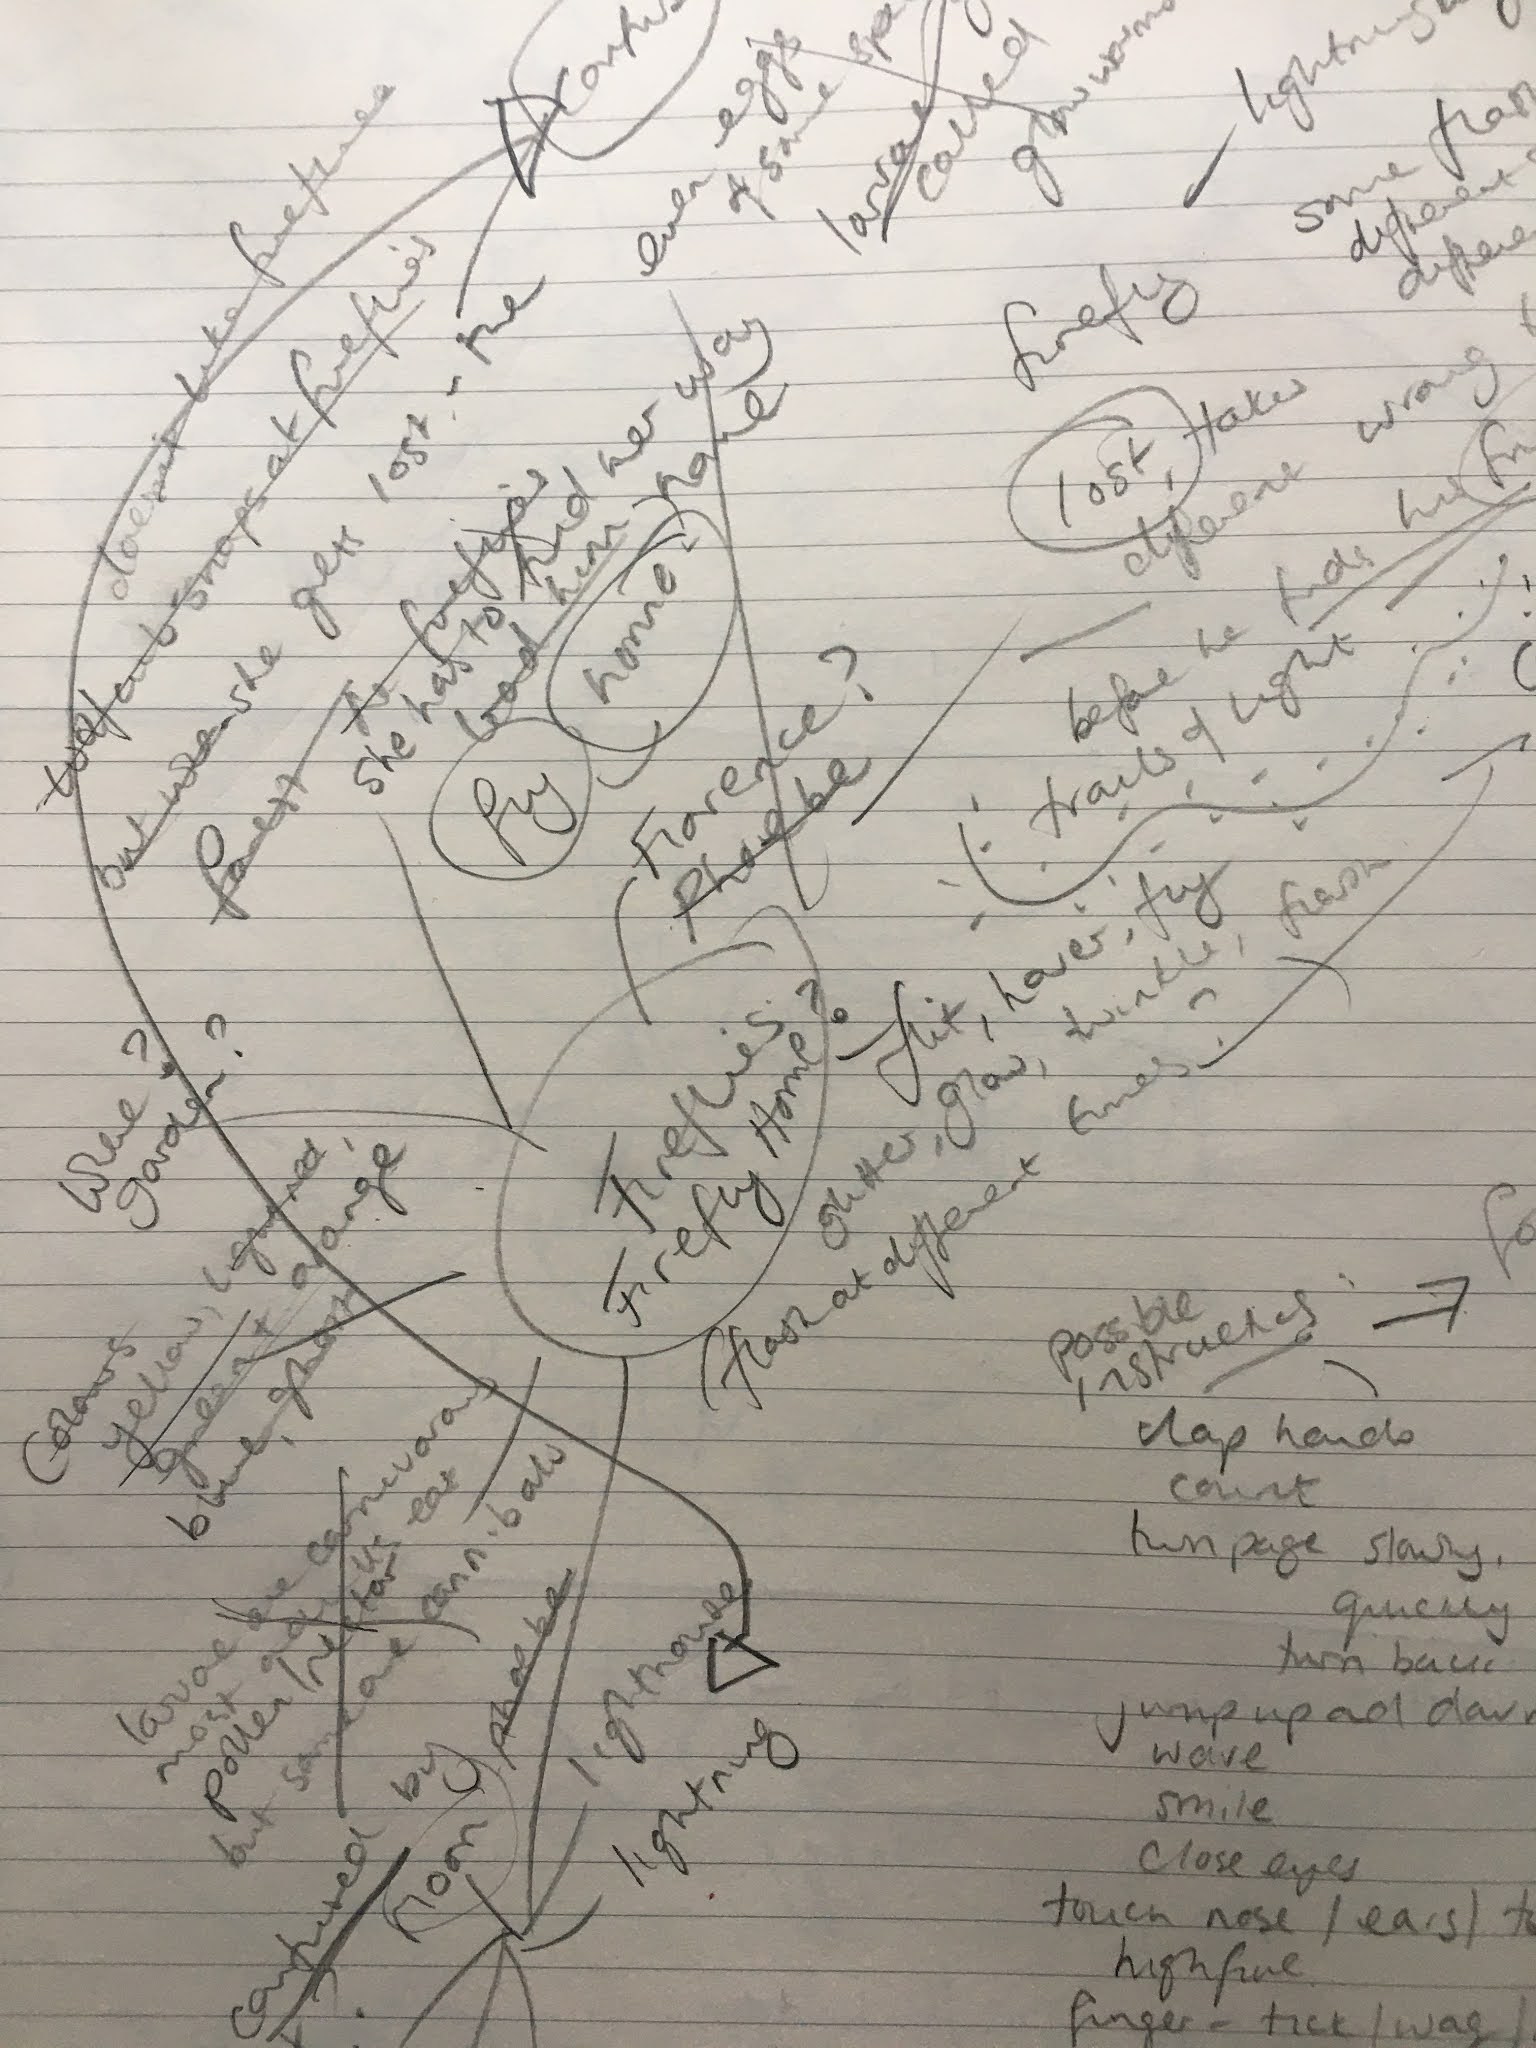 doesn't like fireflies
snaps at fireflies
but when she gets lost - the
forest
fireflies
she has to find her way
lead him home
home
fly
even eggs
of some
larvae
called
glowworms
lightning
some flash
different
different
firefly
lost, takes
different wrong
before he finds his
trails of light
Florence?
Phoebe
Fireflies
Firefly Home?
flit, hover, fly
glitter, glow, twinkle, flash
(flash at different times)
Where?
garden?
Colours
yellow, light red,
green + orange
blue, ghost
larvae are carnivorous
most adults eat
pollen/nectar
but some are cannibals
confused by
moon
Phoebe
lighthouse
lightning
possible
instructions
clap hands
count
turn page slowly,
quickly
turn back
jump up and down
wave
smile
close eyes
touch nose / ears /
high five
finger - tick / wag /